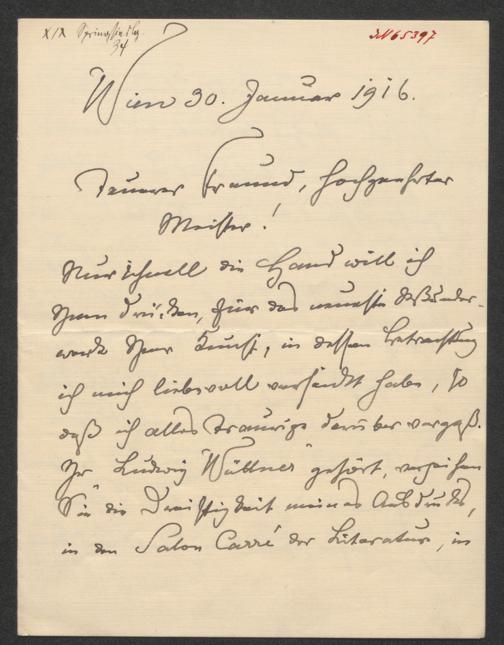 XIX Springsiedlg.
34
IN 65397
Wien 30. Januar 1916.
Teuerer Freund, hochgeehrter
Meister!
Nur schnell die Hand will ich
Ihnen drücken, für das neueste Wunder-
werk Ihrer Kunst, in dessen Betrachtung
ich mich liebevoll versenkt habe, so
daß ich alles Traurige darüber vergaß.
Ihr „Ludwig Wüllner" gehört, verzeihen
Sie die Dreistigkeit meines Ausdrucks,
in den Salon Carré der Literatur, in